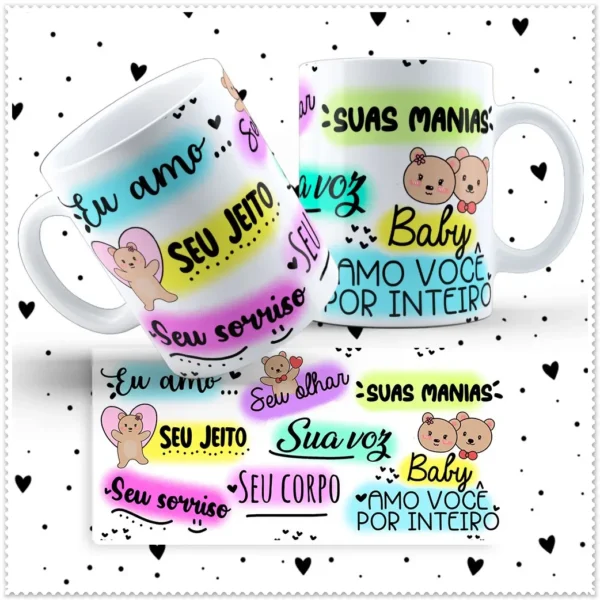 Eu amo ...
Seu
SEU JEITO
SEU
Seu sorriso
SUAS MANIAS
a voz
Baby
AMO VOCÊ
POR INTEIRO
Eu amo...
Seu olhar
SUAS MANIAS
SEU JEITO
Sua voz
Baby
Seu sorriso
SEU CORPO
AMO VOCÊ
POR INTEIRO